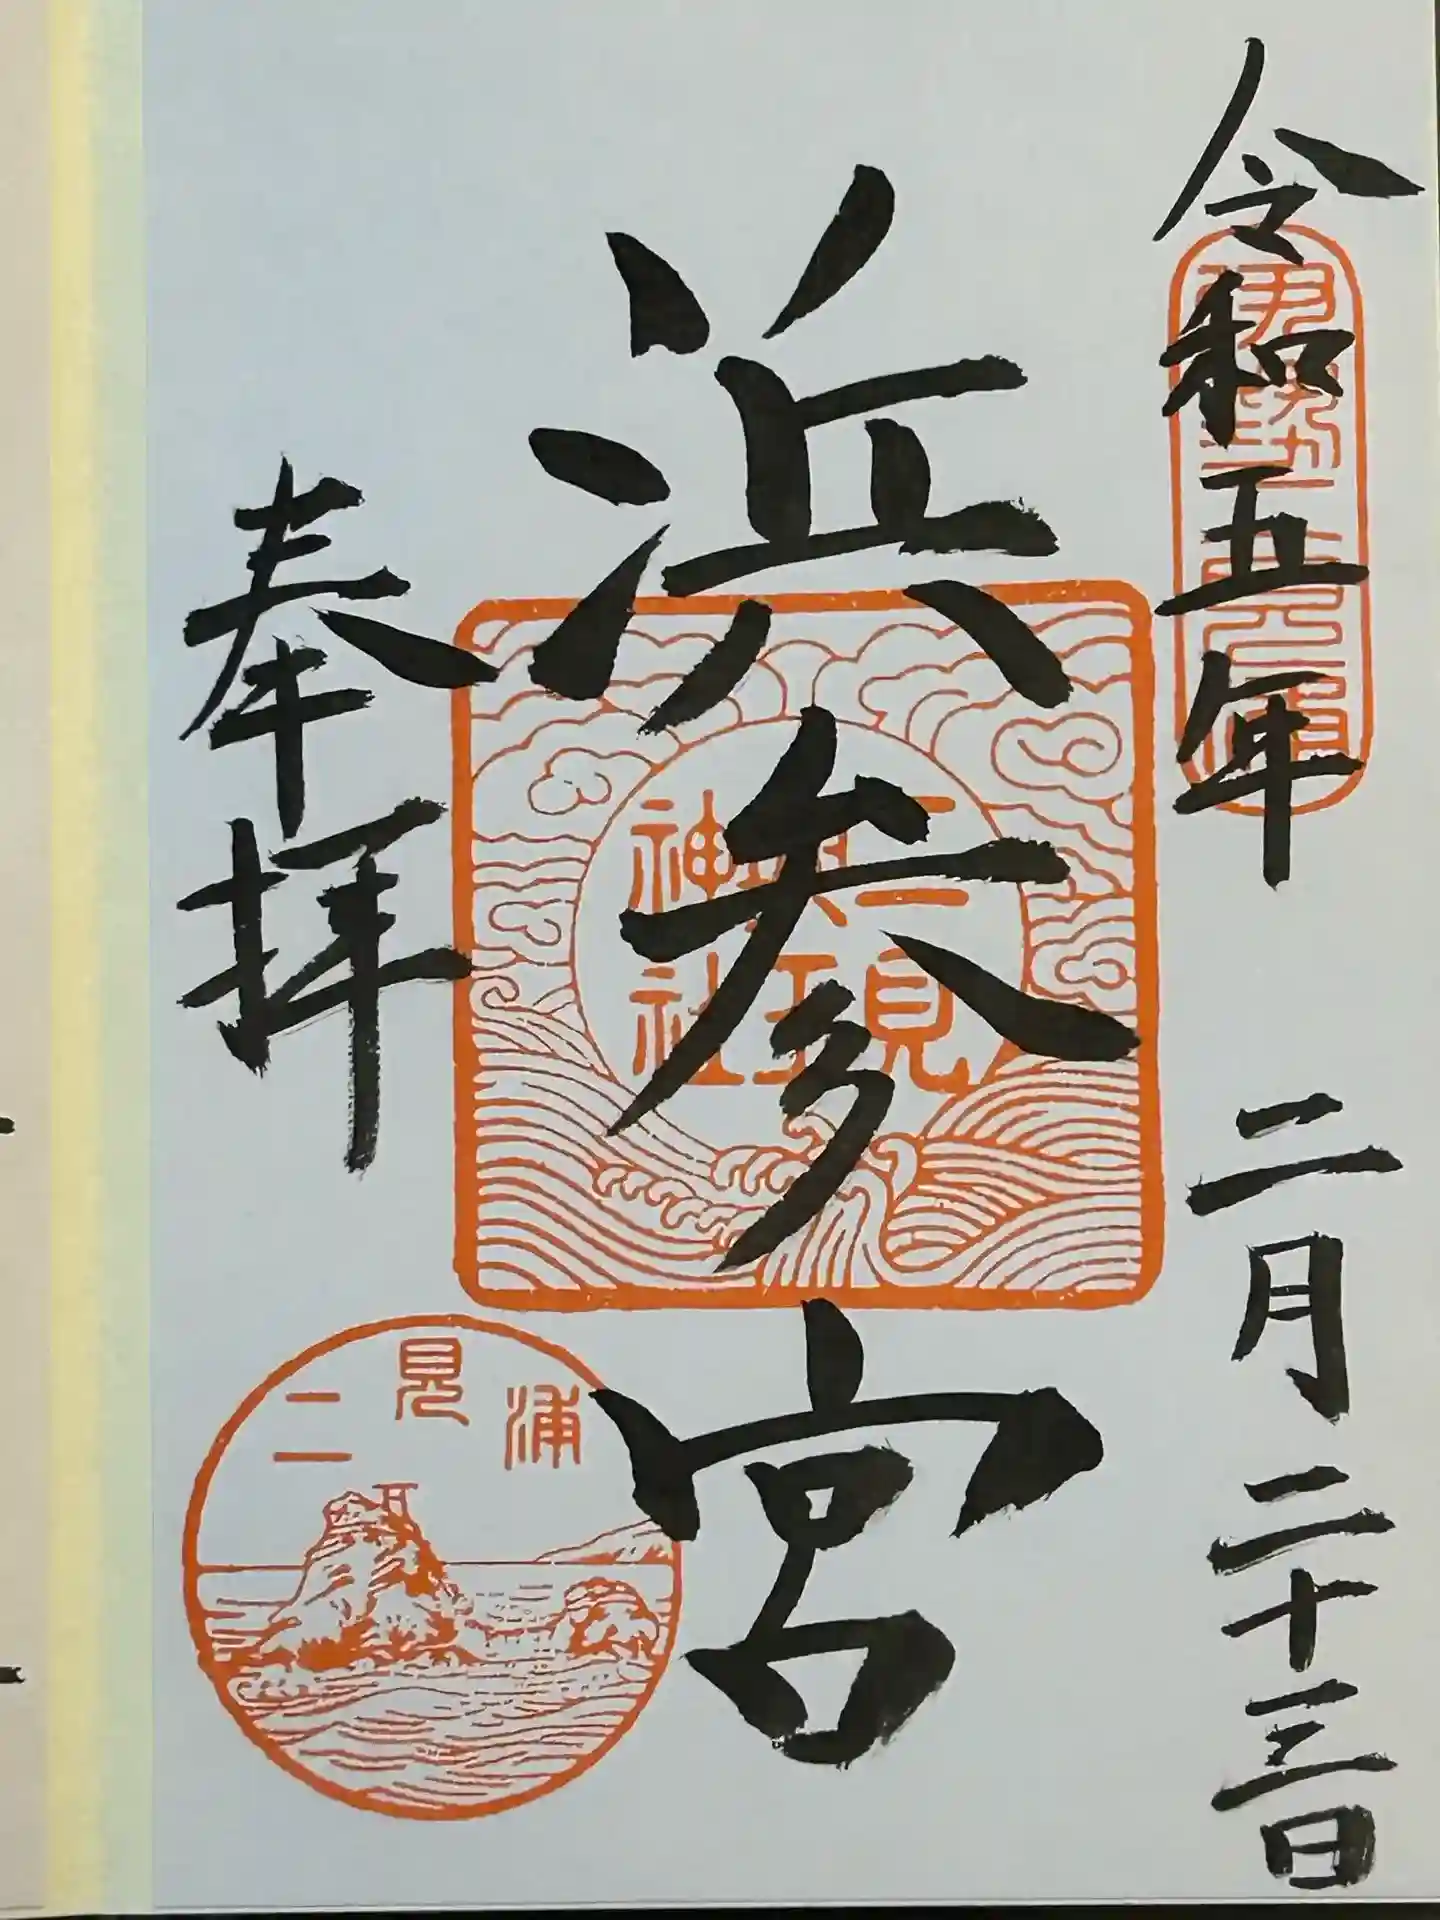 令和五年 二月二十三日
浜参宮
奉拝
二見
興玉
神社
二見浦